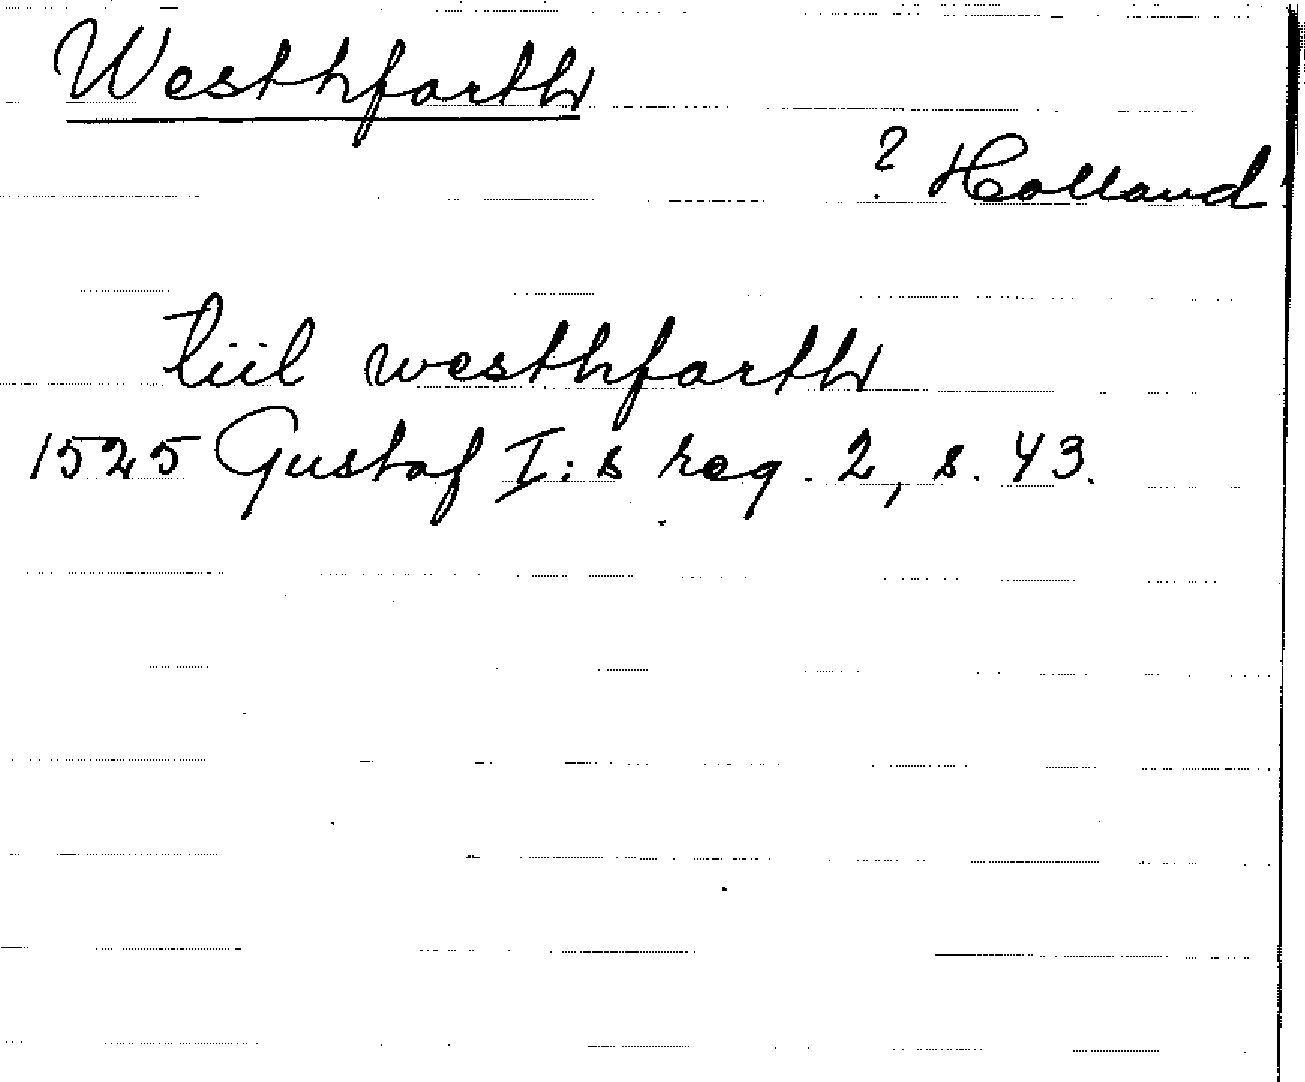 Westhfarth
? Holland
tiil westhfarth
1525 Gustaf I:s reg. 2, s. 43.